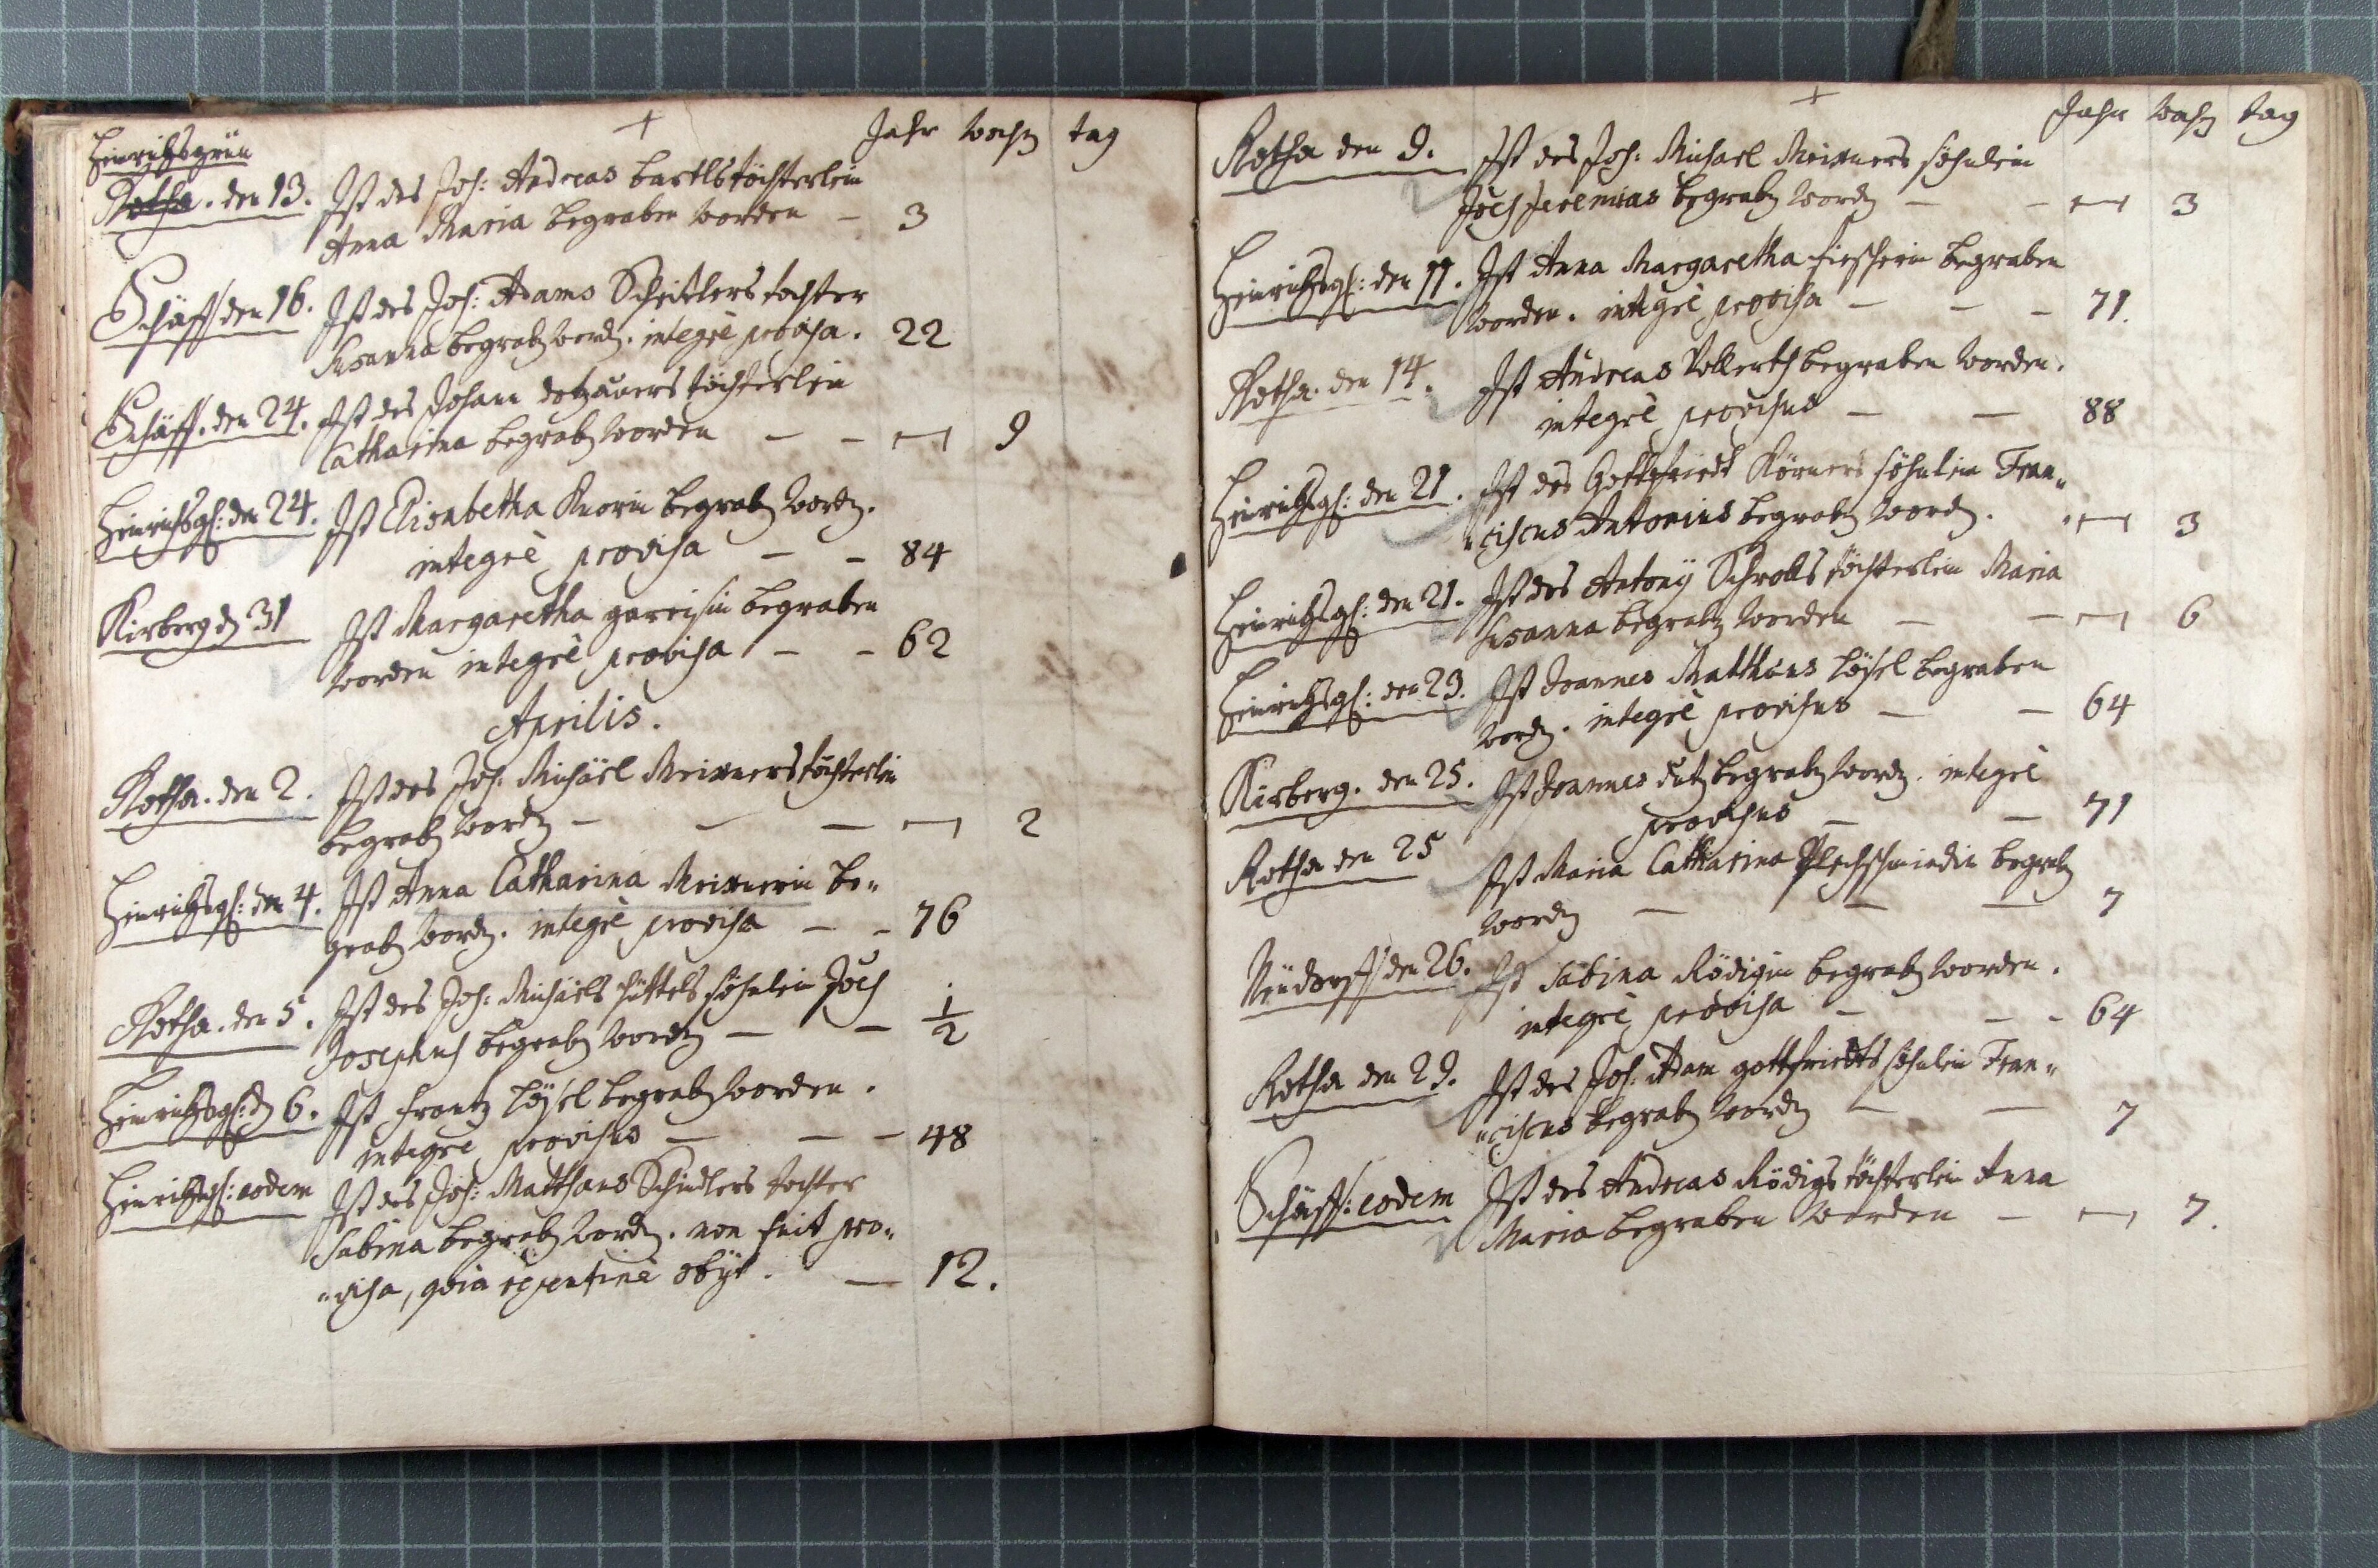 Jahr woch tag
Heinrichsgrün
Rotha. den 13. Ist des Joh: Andreas bartls töchterlein
Anna Maria begraben worden – 3
Schäff den 16. Ist des Joh: Adams Schittlers tochter
Susanna begrabn wordn. integrè provisa. 22
Schäff. den 24. Ist des Johann dotzauers töchterlein
Catharina begrabn worden – – 9
Heinrichsgh: den 24. Ist Elisabetha Knorin begrabn wordn.
integrè provisa – – 84
Kirberg dn 31 Ist Margaretha gareisin begraben
worden integrè provisa – – 62
Aprilis.
Rotha. den 2. Ist des Joh: Michäel Meixners töchterlein
begrabn wordn – – – 2
Heinrichsgh: den 4. Ist Anna Catharina Meixnerin be„
grabn wordn. integrè provisa – – 76
Rotha. den 5. Ist des Joh: Michäels hüttels söhnlein Joh
Josephus begrabn wordn – – 1/2
Heinrichsgh: dn 6. Ist Frantz löysel begrabn worden.
integre provisus – – – 48
Heinrichsgh: eodem Ist des Joh: Matthäus Schindlers tochter
Sabina begrabn wordn. non fuit pro„
„visa, quia repentinè obÿt. – 12.
Jahr woch tag
Rotha den 9. Ist des Joh: Michael Meixners söhnlein
Joh Jeremias begrabn wordn – – 3
Heinrichsgh: den 11. Ist Anna Margaretha fischerin begraben
worden. integrè provisa – – – 71.
Rotha. den 14. Ist Andreas Vollerth begraben worden.
integrè provisus – – 88
Heinrichsgh: den 21. Ist des Gottfriedt Körners söhnlein Fran„
„ciscus Antonius begrabn wordn. 3
Heinrichsgh: den 21. Ist des Antonÿ Schrolls töchterlein Maria
Susanna begrabn worden – – 6
Heinrichsgh: den 23. Ist Joannes Matthäus löysel begraben
wordn. integrè provisus – – 64
Kirberg. den 25. Ist Joannes dutz begrabn wordn. integrè
provisus – – 71
Rotha den 25 Ist Maria Catharina Plechschmiedin begrabn
wordn – – – 7
Neudorff den 26. Ist Sabina Rödigin begrabn worden.
integrè provisa – – – 64
Rotha den 29. Ist des Joh: Adam gottfriedts söhnlein Fran„
„ciscus begrabn wordn – – 7
Schäff: eodem Ist des Andreas Rödigs töchterlein Anna
Maria begraben worden – 7.